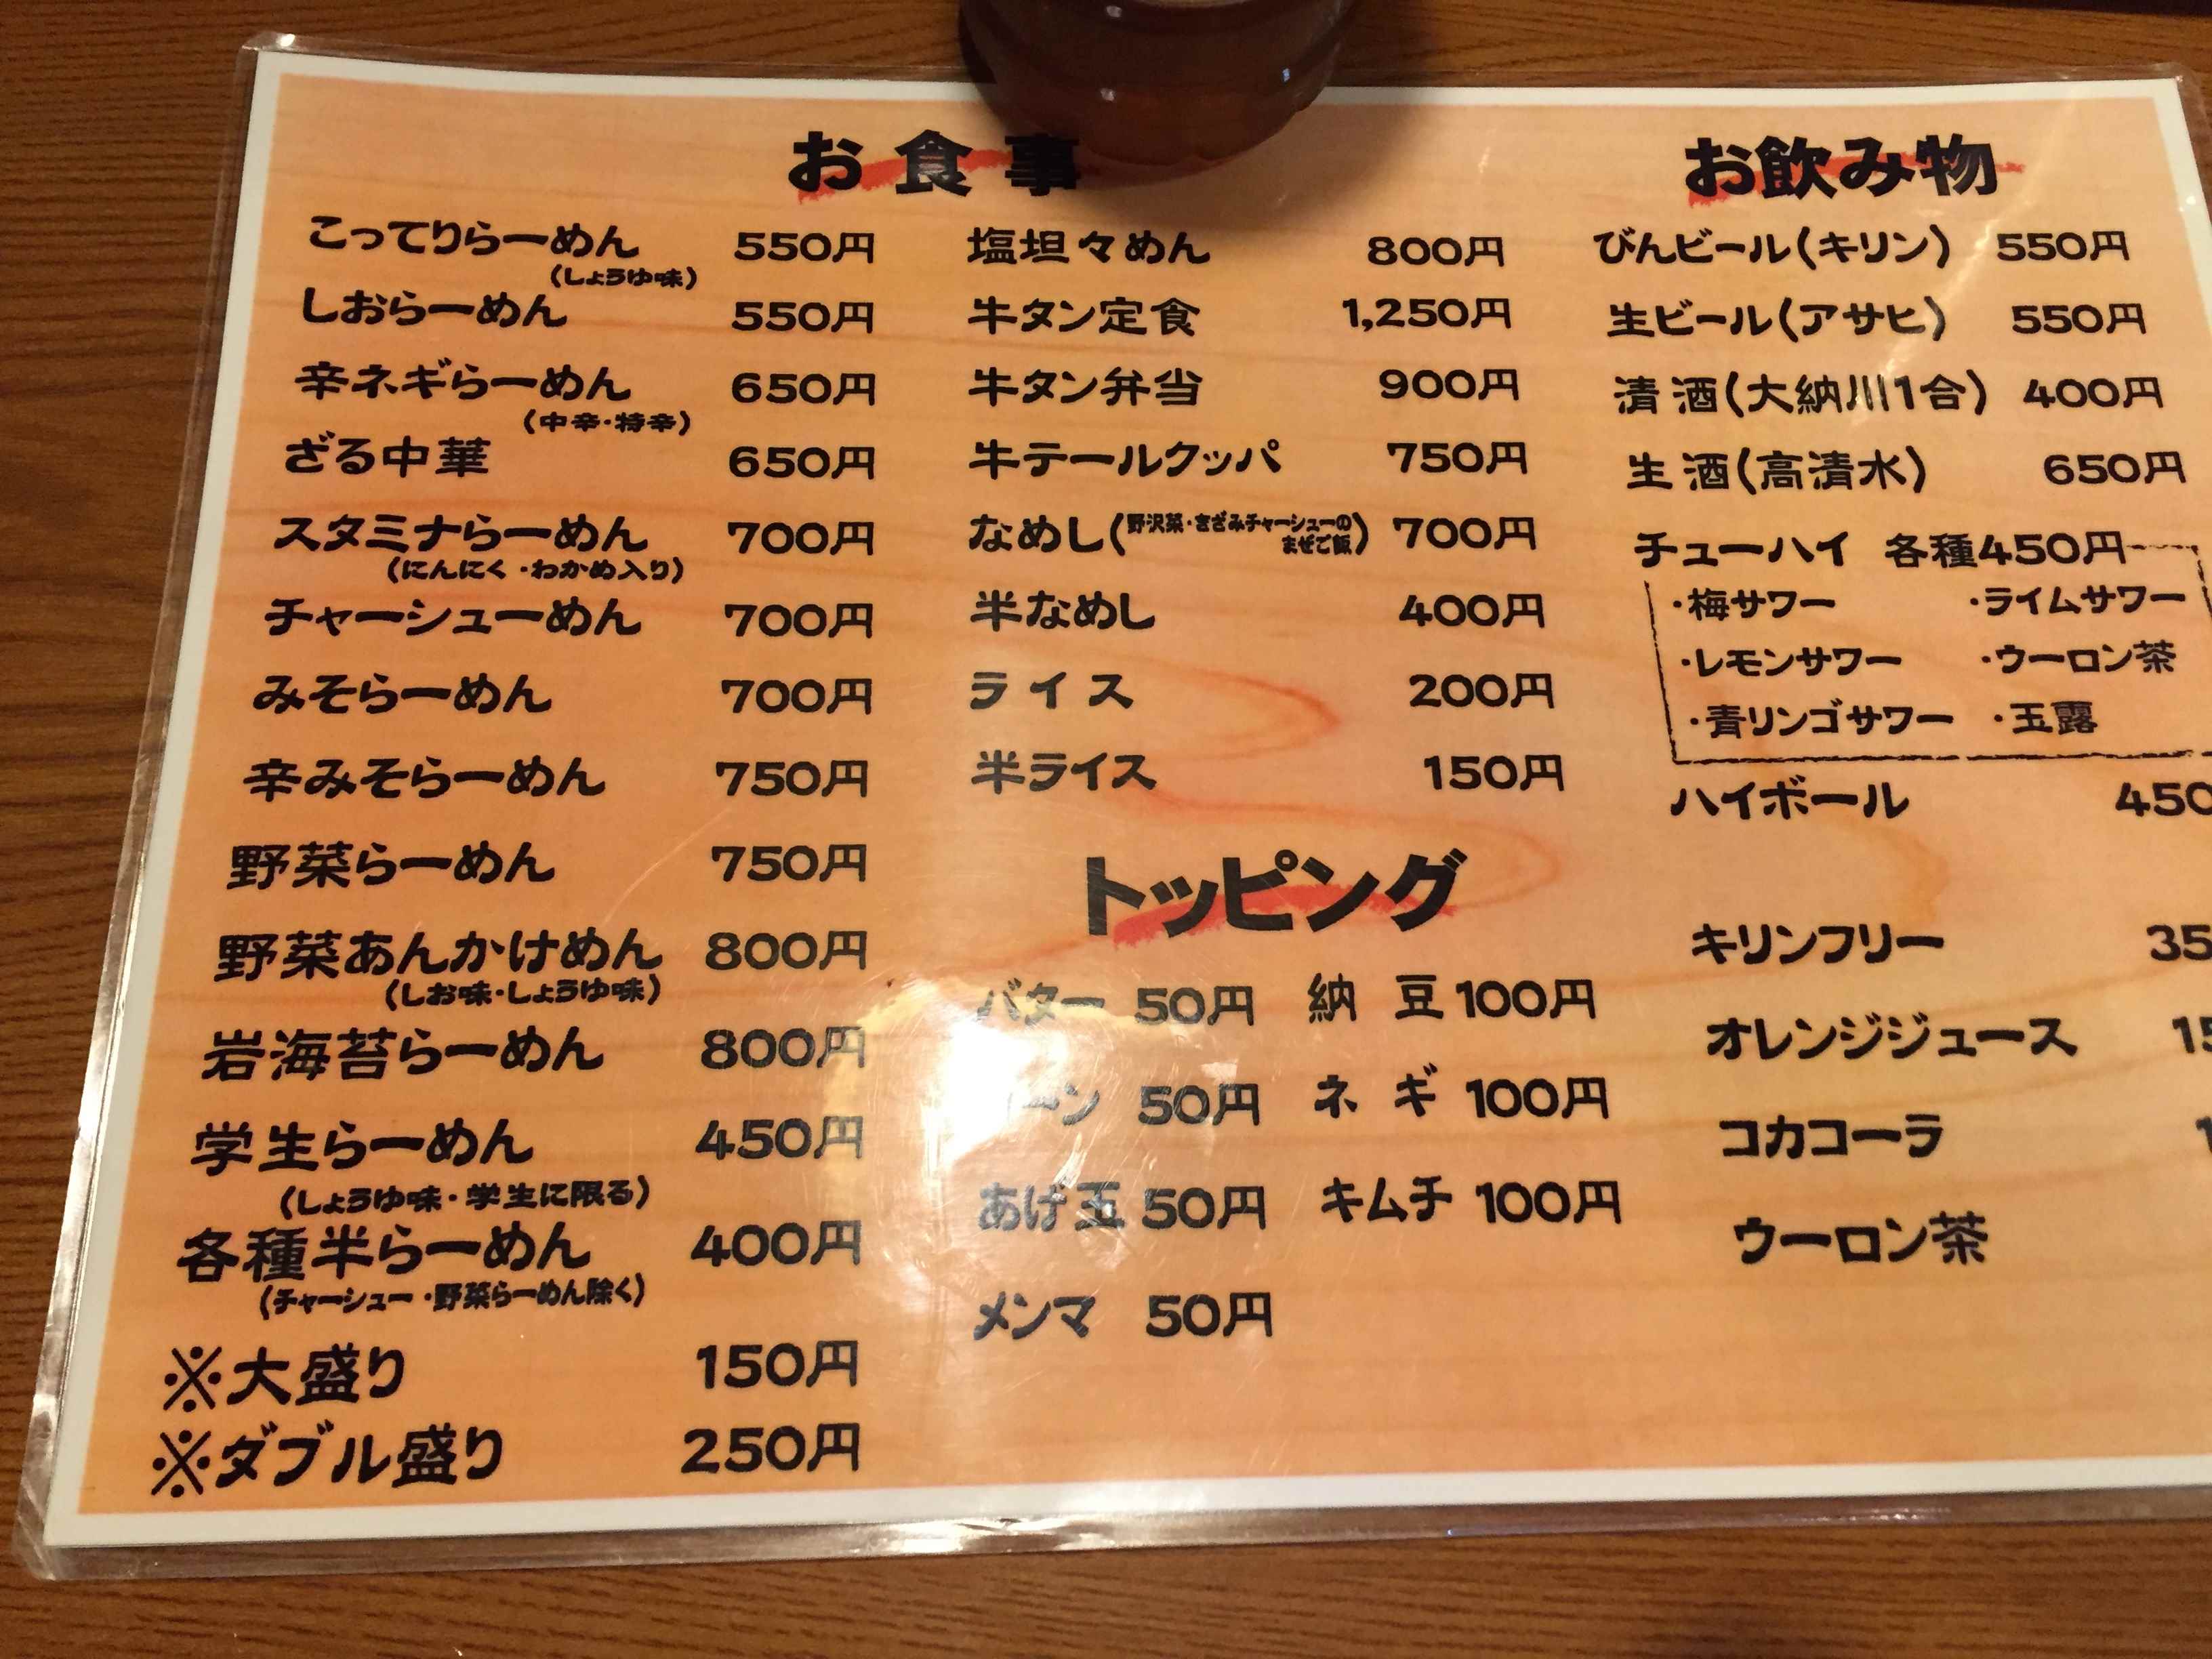 お食事
こってりらーめん 550円
(しょうゆ味)
しおらーめん 550円
辛ネギらーめん 650円
(中辛・特辛)
ざる中華 650円
スタミナらーめん 700円
(にんにく・わかめ入り)
チャーシューめん 700円
みそらーめん 700円
辛みそらーめん 750円
野菜らーめん 750円
野菜あんかけめん 800円
(しお味・しょうゆ味)
岩海苔らーめん 800円
学生らーめん 450円
(しょうゆ味・学生に限る)
各種半らーめん 400円
(チャーシュー・野菜らーめん除く)
※大盛り 150円
※ダブル盛り 250円
塩坦々めん 800円
牛タン定食 1,250円
牛タン弁当 900円
牛テールクッパ 750円
なめし(野沢菜・きざみチャーシューの
まぜご飯) 700円
半なめし 400円
ライス 200円
半ライス 150円
トッピング
バター 50円 納豆 100円
ーン 50円 ネギ 100円
あげ玉 50円 キムチ 100円
メンマ 50円
お飲み物
びんビール(キリン) 550円
生ビール(アサヒ) 550円
清酒(大納川1合) 400円
生酒(高清水) 650円
チューハイ 各種450円
・梅サワー ・ライムサワー
・レモンサワー ・ウーロン茶
・青リンゴサワー ・玉露
ハイボール 450
キリンフリー 35
オレンジジュース 15
コカコーラ 1
ウーロン茶